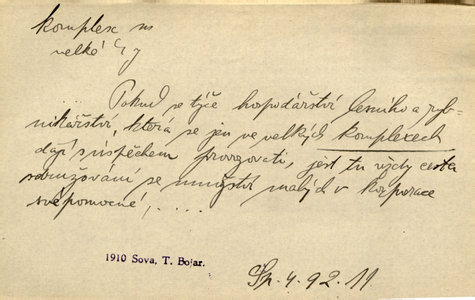 komplex m
velké
Pokud se týče hospodářství lesního a ryb-
nikářství, která se jen ve velkých komplexech
dají s úspěchem provozovati, jest tu vždy cesta
sdružování se množství malých v korporace
svépomocné, . . . .
1910 Sova, T. Bojar.
Sp. 4. 92. 11